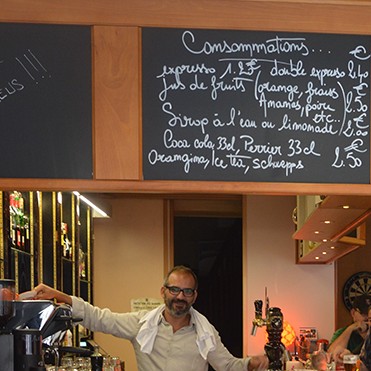 eus !!!
Consommations.... €
expresso 1.25€ double expresso 2.40
jus de fruits (orange, fraise 2.50
Ananas, poire etc..)
Sirop à l'eau ou limonade 2.00
Coca cola 33cl, Perrier 33cl
Orangina, Ice thé, schepps 2.50